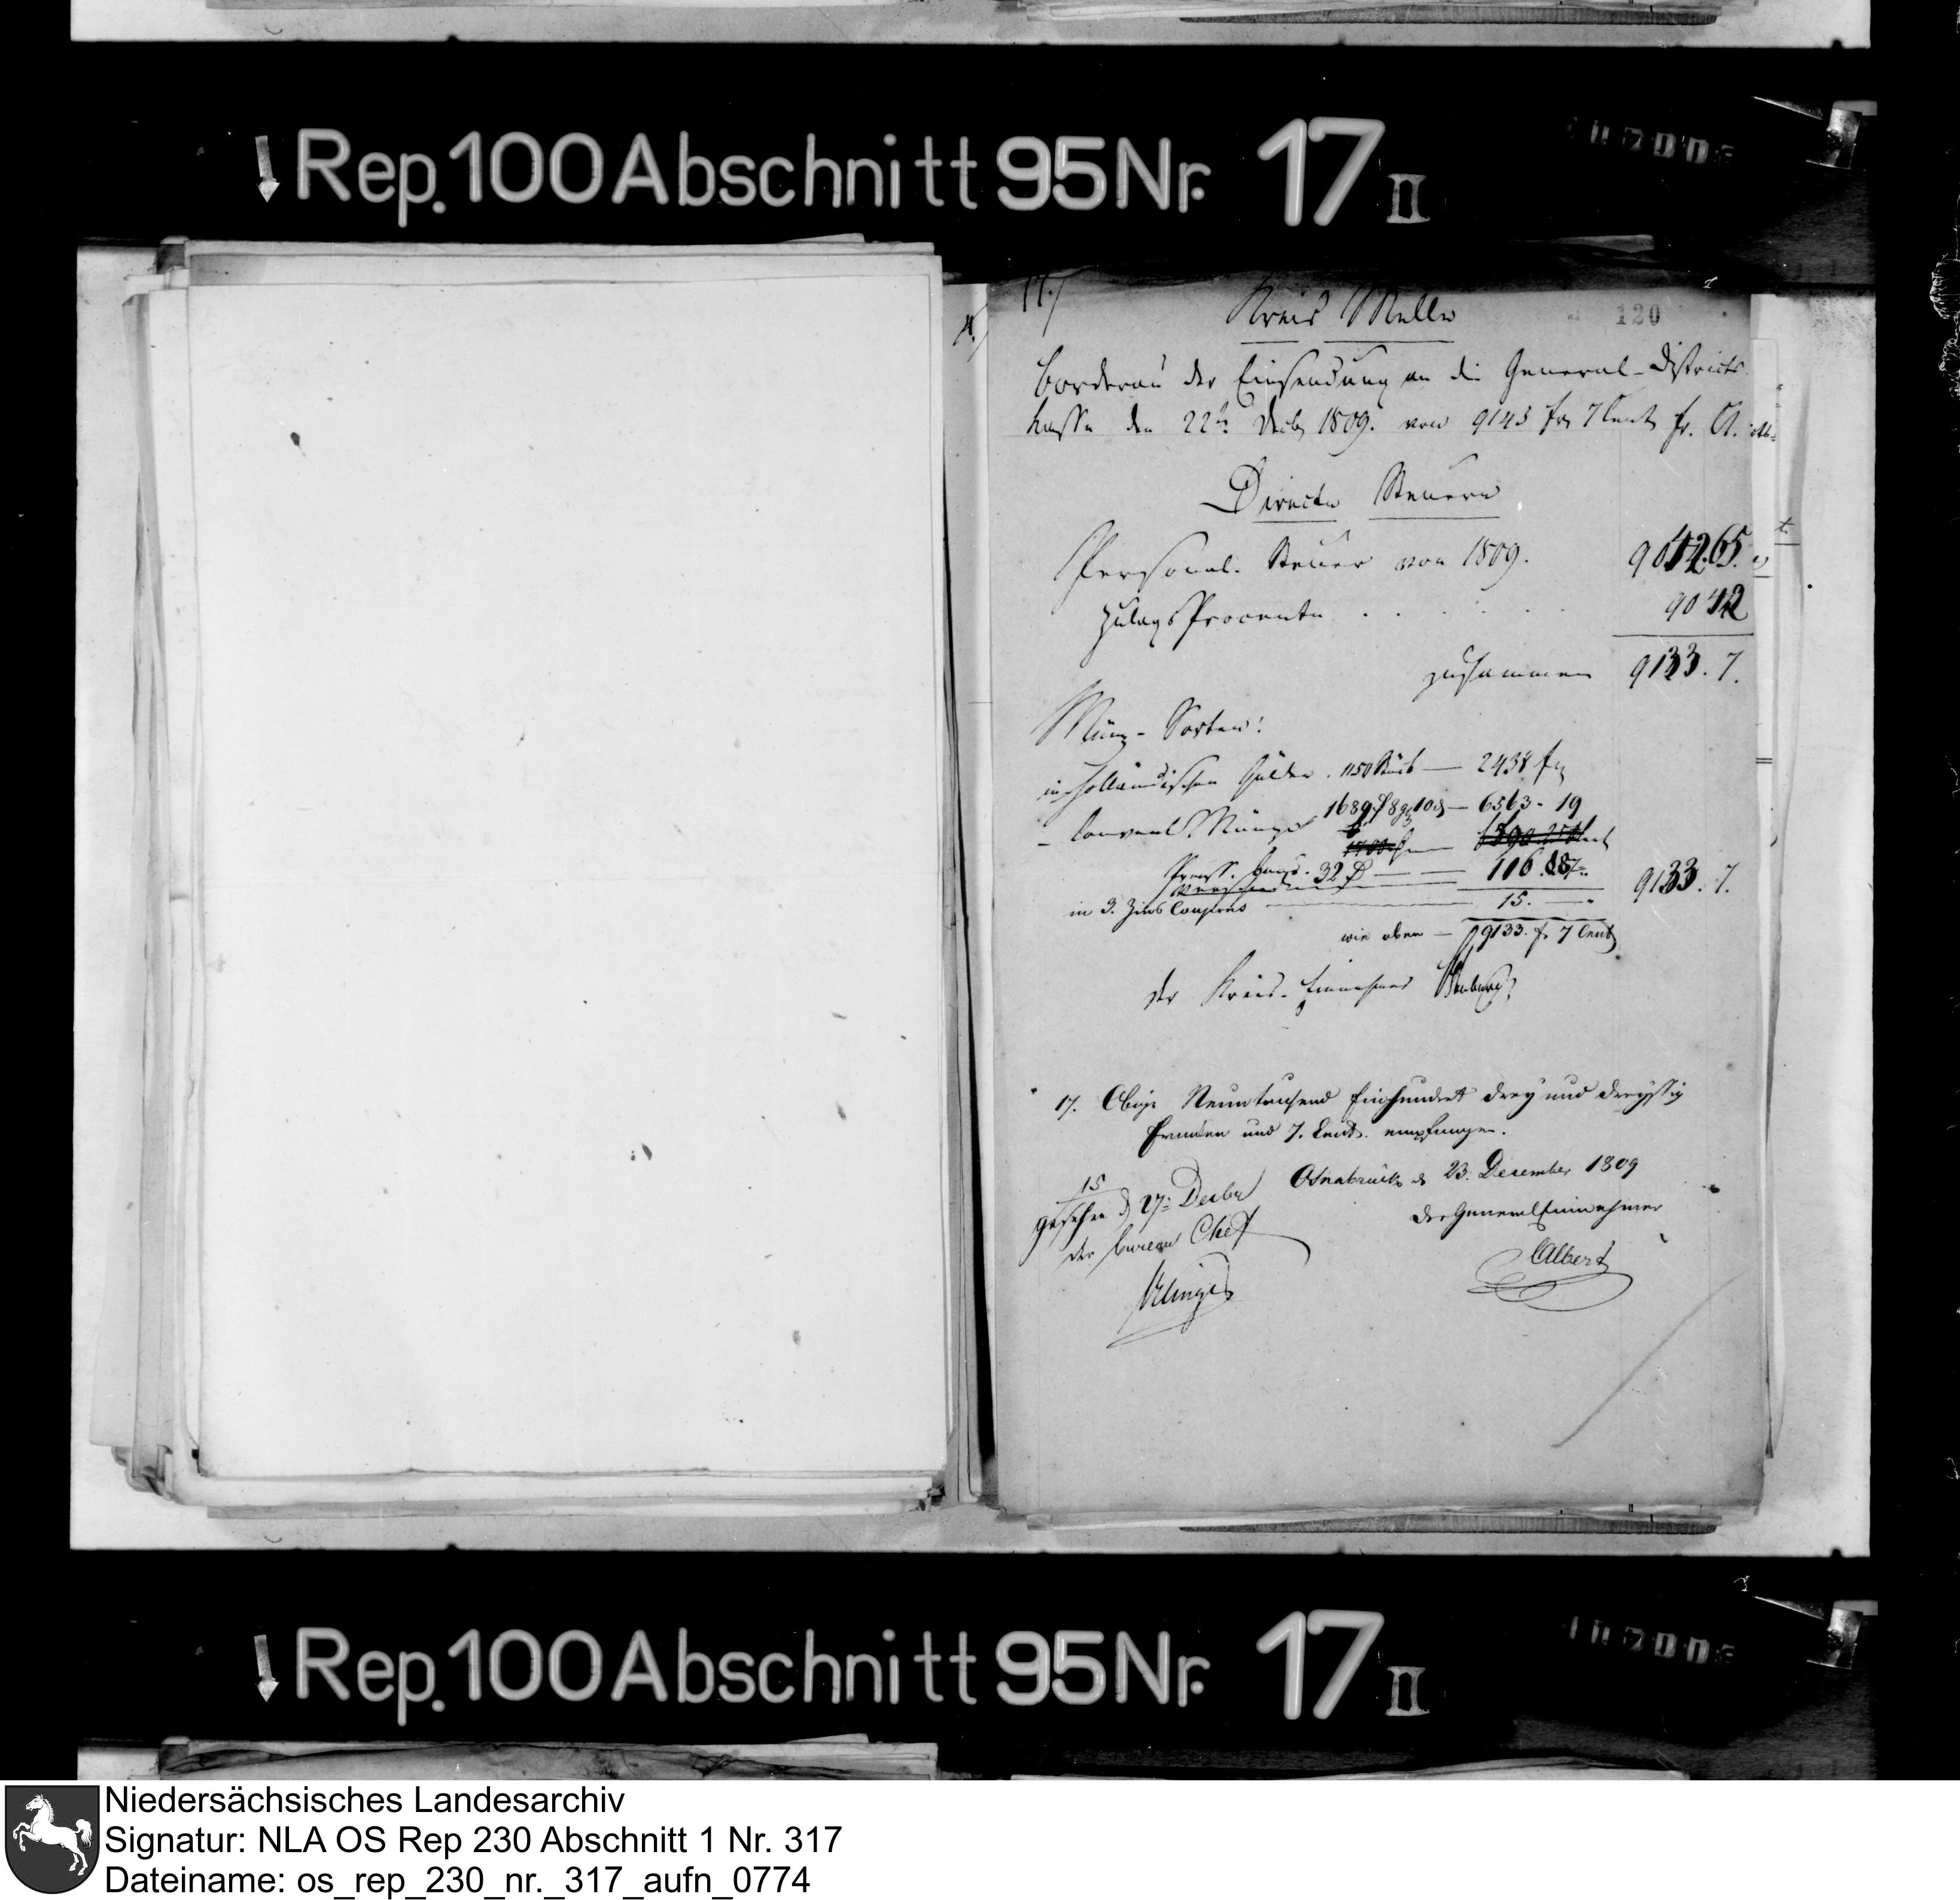 Rep. 100 Abschnitt 95 Nr. 17 II
17.)
Kreis Melle
120
Borderau der Einsendung an die General-Districts
Kasse den 22ten Decb 1809. von 9143 frs 7 Cent
Directe Steuern
Personal-Steuer von 1809. 9042.65.
Zulags Procente . . . . . 90 42
zusammen 9133. 7.
Münz-Sorten:
in Holländischen Gulden. 1150 Stück — 2438 frs
- Convent. Münze 6563 - 19
Preuss. 32 116.
in 3. Zins Coupons — 15. —
9133. 7.
wie oben — 9133. fr 7 Cent
der Kreis-Einnehmer
17. Obige Neuntausend Einhundert drey und dreyssig
Franken und 7. Cent. empfangen.
Osnabrück d. 23. December 1809
der General Einnehmer
Albert
15
gesehen d. 27. Decbr
der Bureau Chef
Rep. 100 Abschnitt 95 Nr. 17 II
Niedersächsisches Landesarchiv
Signatur: NLA OS Rep 230 Abschnitt 1 Nr. 317
Dateiname: os_rep_230_nr._317_aufn_0774